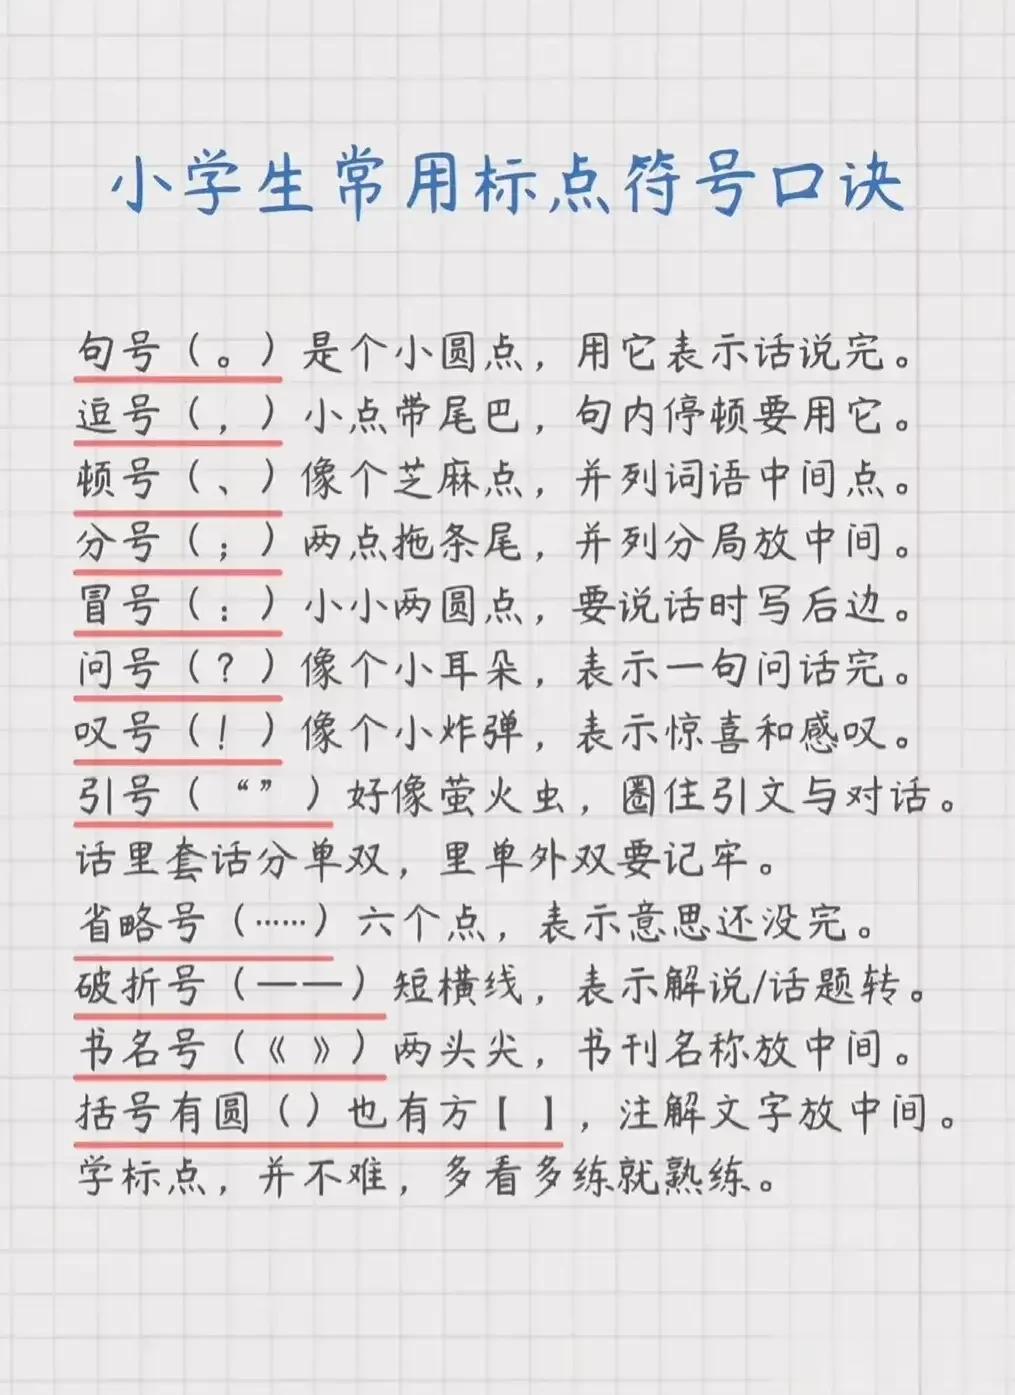 小学生常用标点符号口诀
句号（。）是个小圆点，用它表示话说完。
逗号（，）小点带尾巴，句内停顿要用它。
顿号（、）像个芝麻点，并列词语中间点。
分号（；）两点拖条尾，并列分局放中间。
冒号（：）小小两圆点，要说话时写后边。
问号（？）像个小耳朵，表示一句问话完。
叹号（！）像个小炸弹，表示惊喜和感叹。
引号（“”）好像萤火虫，圈住引文与对话。
话里套话分单双，里单外双要记牢。
省略号（……）六个点，表示意思还没完。
破折号（——）短横线，表示解说/话题转。
书名号（《 》）两头尖，书刊名称放中间。
括号有圆（）也有方【 】，注解文字放中间。
学标点，并不难，多看多练就熟练。